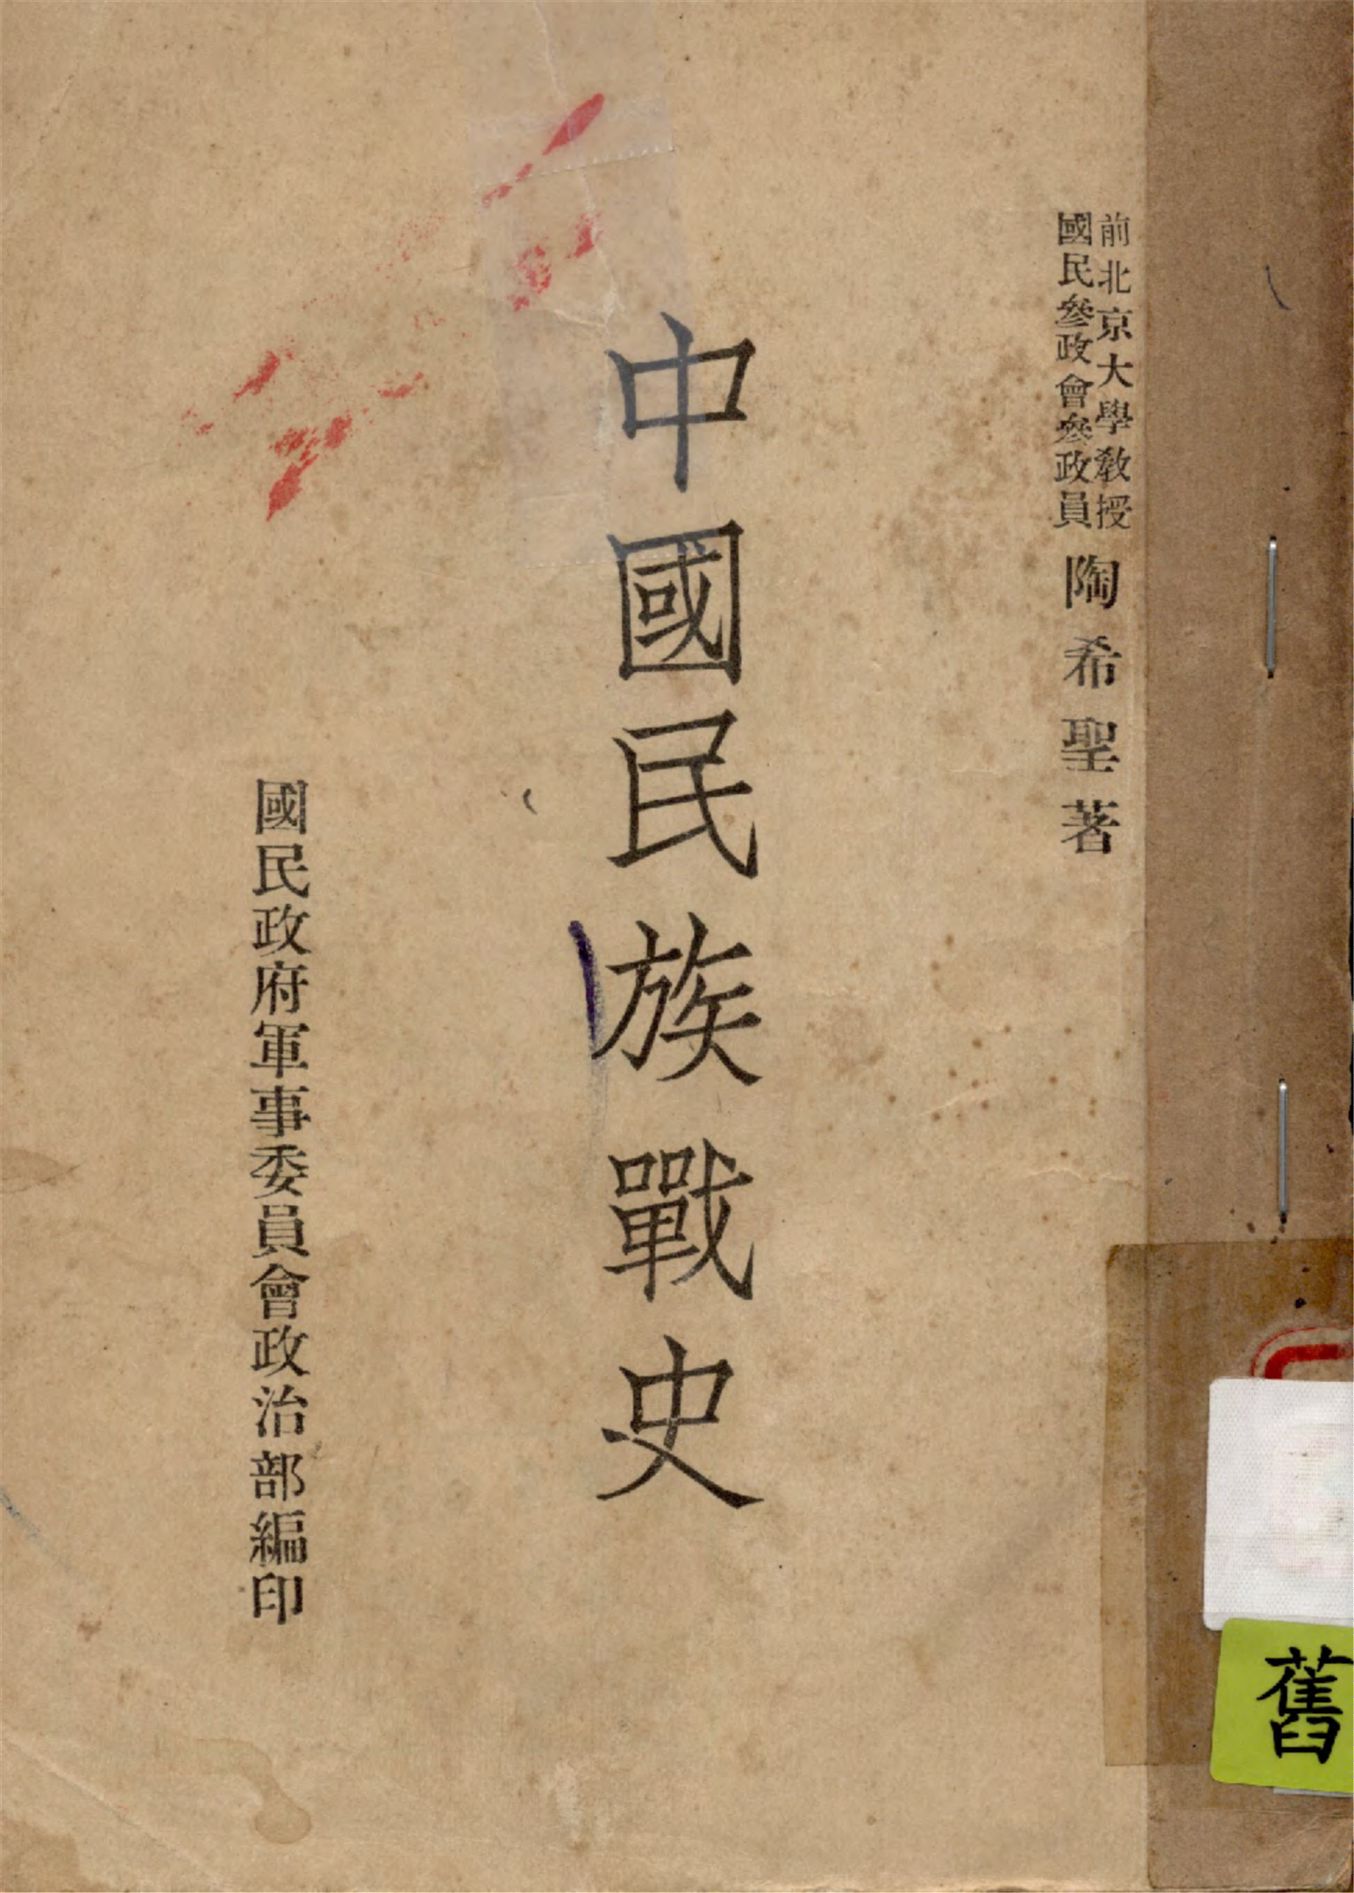 前北京大學教授
國民參政會參政員
陶希聖著
中國民族戰史
國民政府軍事委員會政治部編印
舊